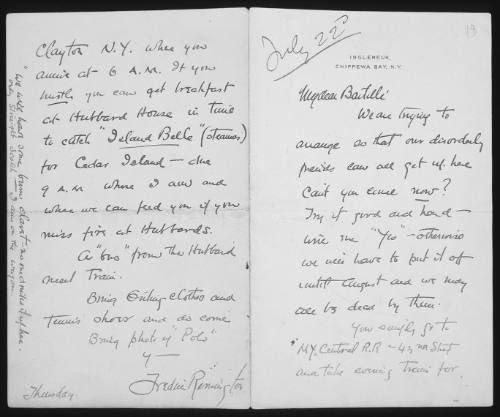 July 22d
INGLENEUK,
CHIPPEWA BAY, N.Y.
My dear Bartlett
We are trying to
arrange so that our disorderly
can all get up here
Can't you come now?
Try it good and hard—
wire me "Yes"—otherwise
we will have to put it off
until August and we may
all be dead by then.
You simply go to
N.Y. Central R.R — 42nd St
and take evening train for
Clayton N.Y. where you
arrive at 6 A.M. If you
hustle you can get breakfast
at Hubbard House in time
to catch "Island Belle" (steamer)
for Cedar Island — due
9 A.M. where I am and
where we can feed you if you
miss it at Hubbards.
A "bus" from the Hubbard
meet train.
Bring fishing clothes and
tennis shoes and do come
Bring photo of "Polo"
Frederic Remington
Thursday
"We will have some claret—no here.
— I am on the wagon